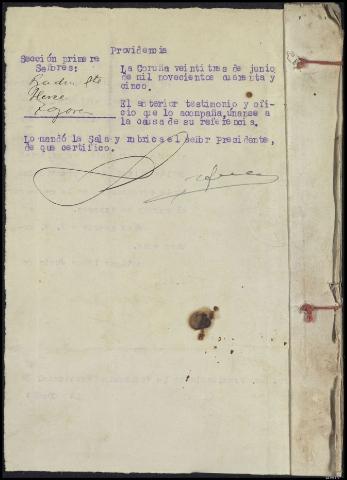 Providencia
Sección primera
Señores:
La Coruña veintitres de junio
de mil novecientos cuarenta y
cinco.
El anterior testimonio y ofi-
cio que lo acompaña, únanse a
la causa de su referencia.
Lo mandó la Sala y rubrica el señor Presidente,
de que certifico.